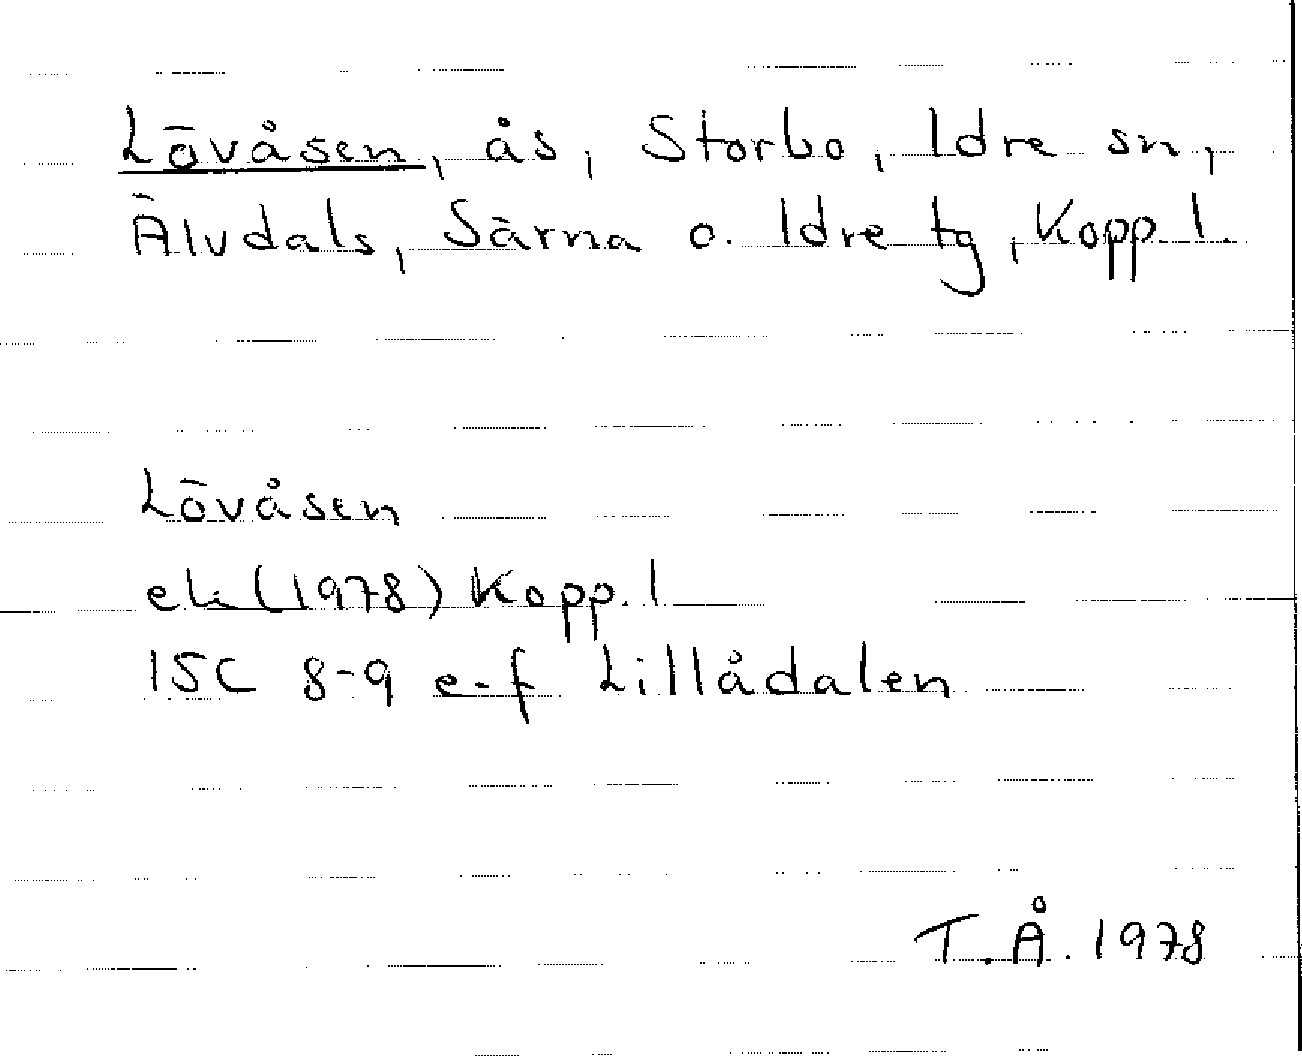 Lövåsen, ås, Storbo, Idre sn,
Älvdals, Särna o. Idre tg, Kopp.l.
Lövåsen
ek (1978) Kopp. l
15C 8-9 e-f Lillådalen
T.Å. 1978